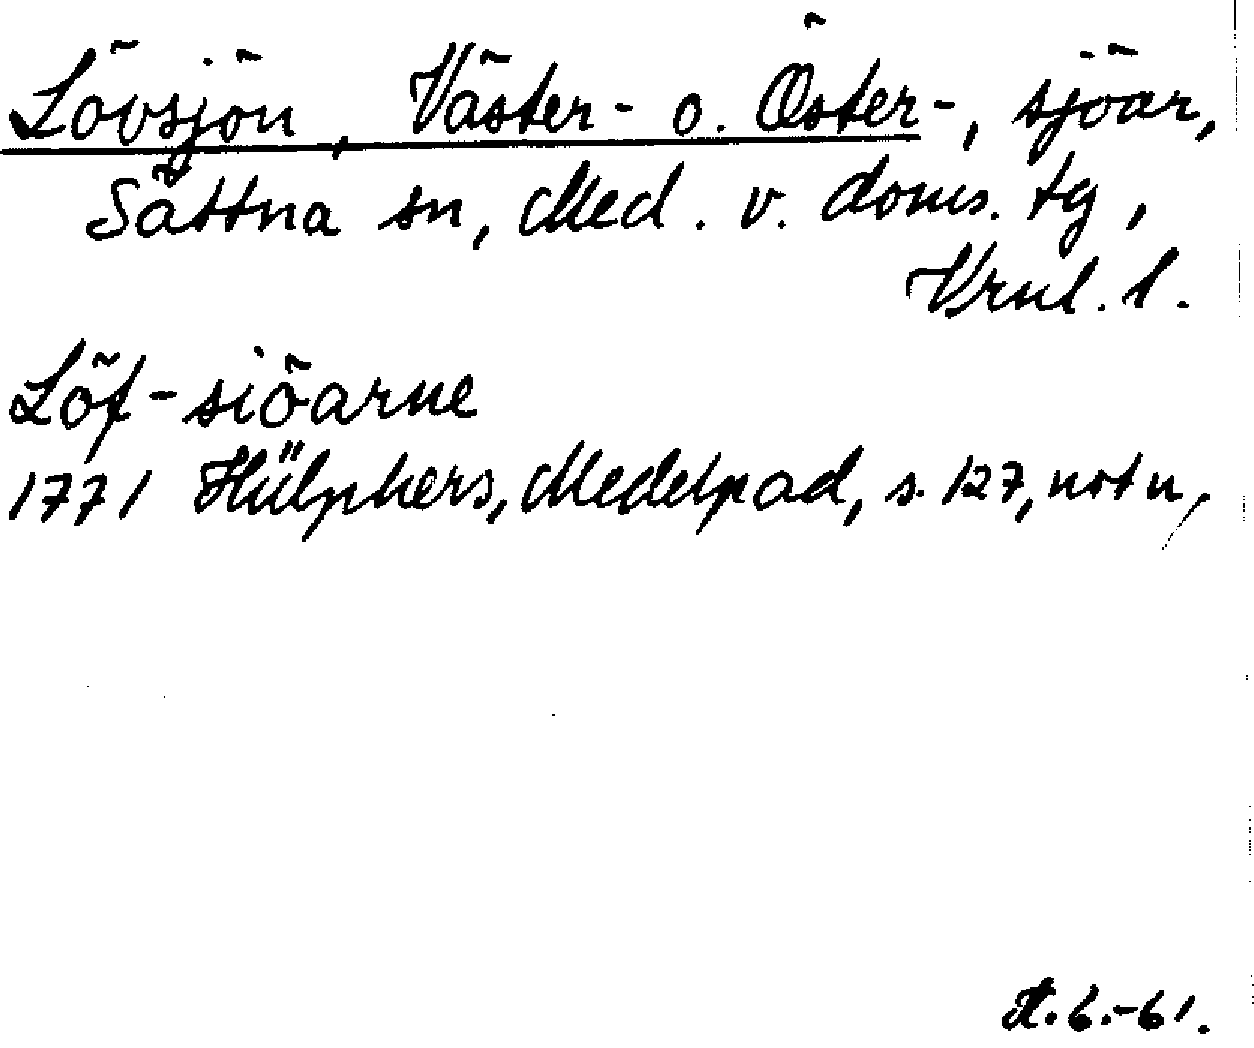 Lövsjön, Väster- o. Öster-, sjöar,
Sättna sn, Med. v. doms. tg,
Vrnl. l.
Löf-siöarne
1771 Hülphers, Medelpad, s. 127, not n,
6.-61.